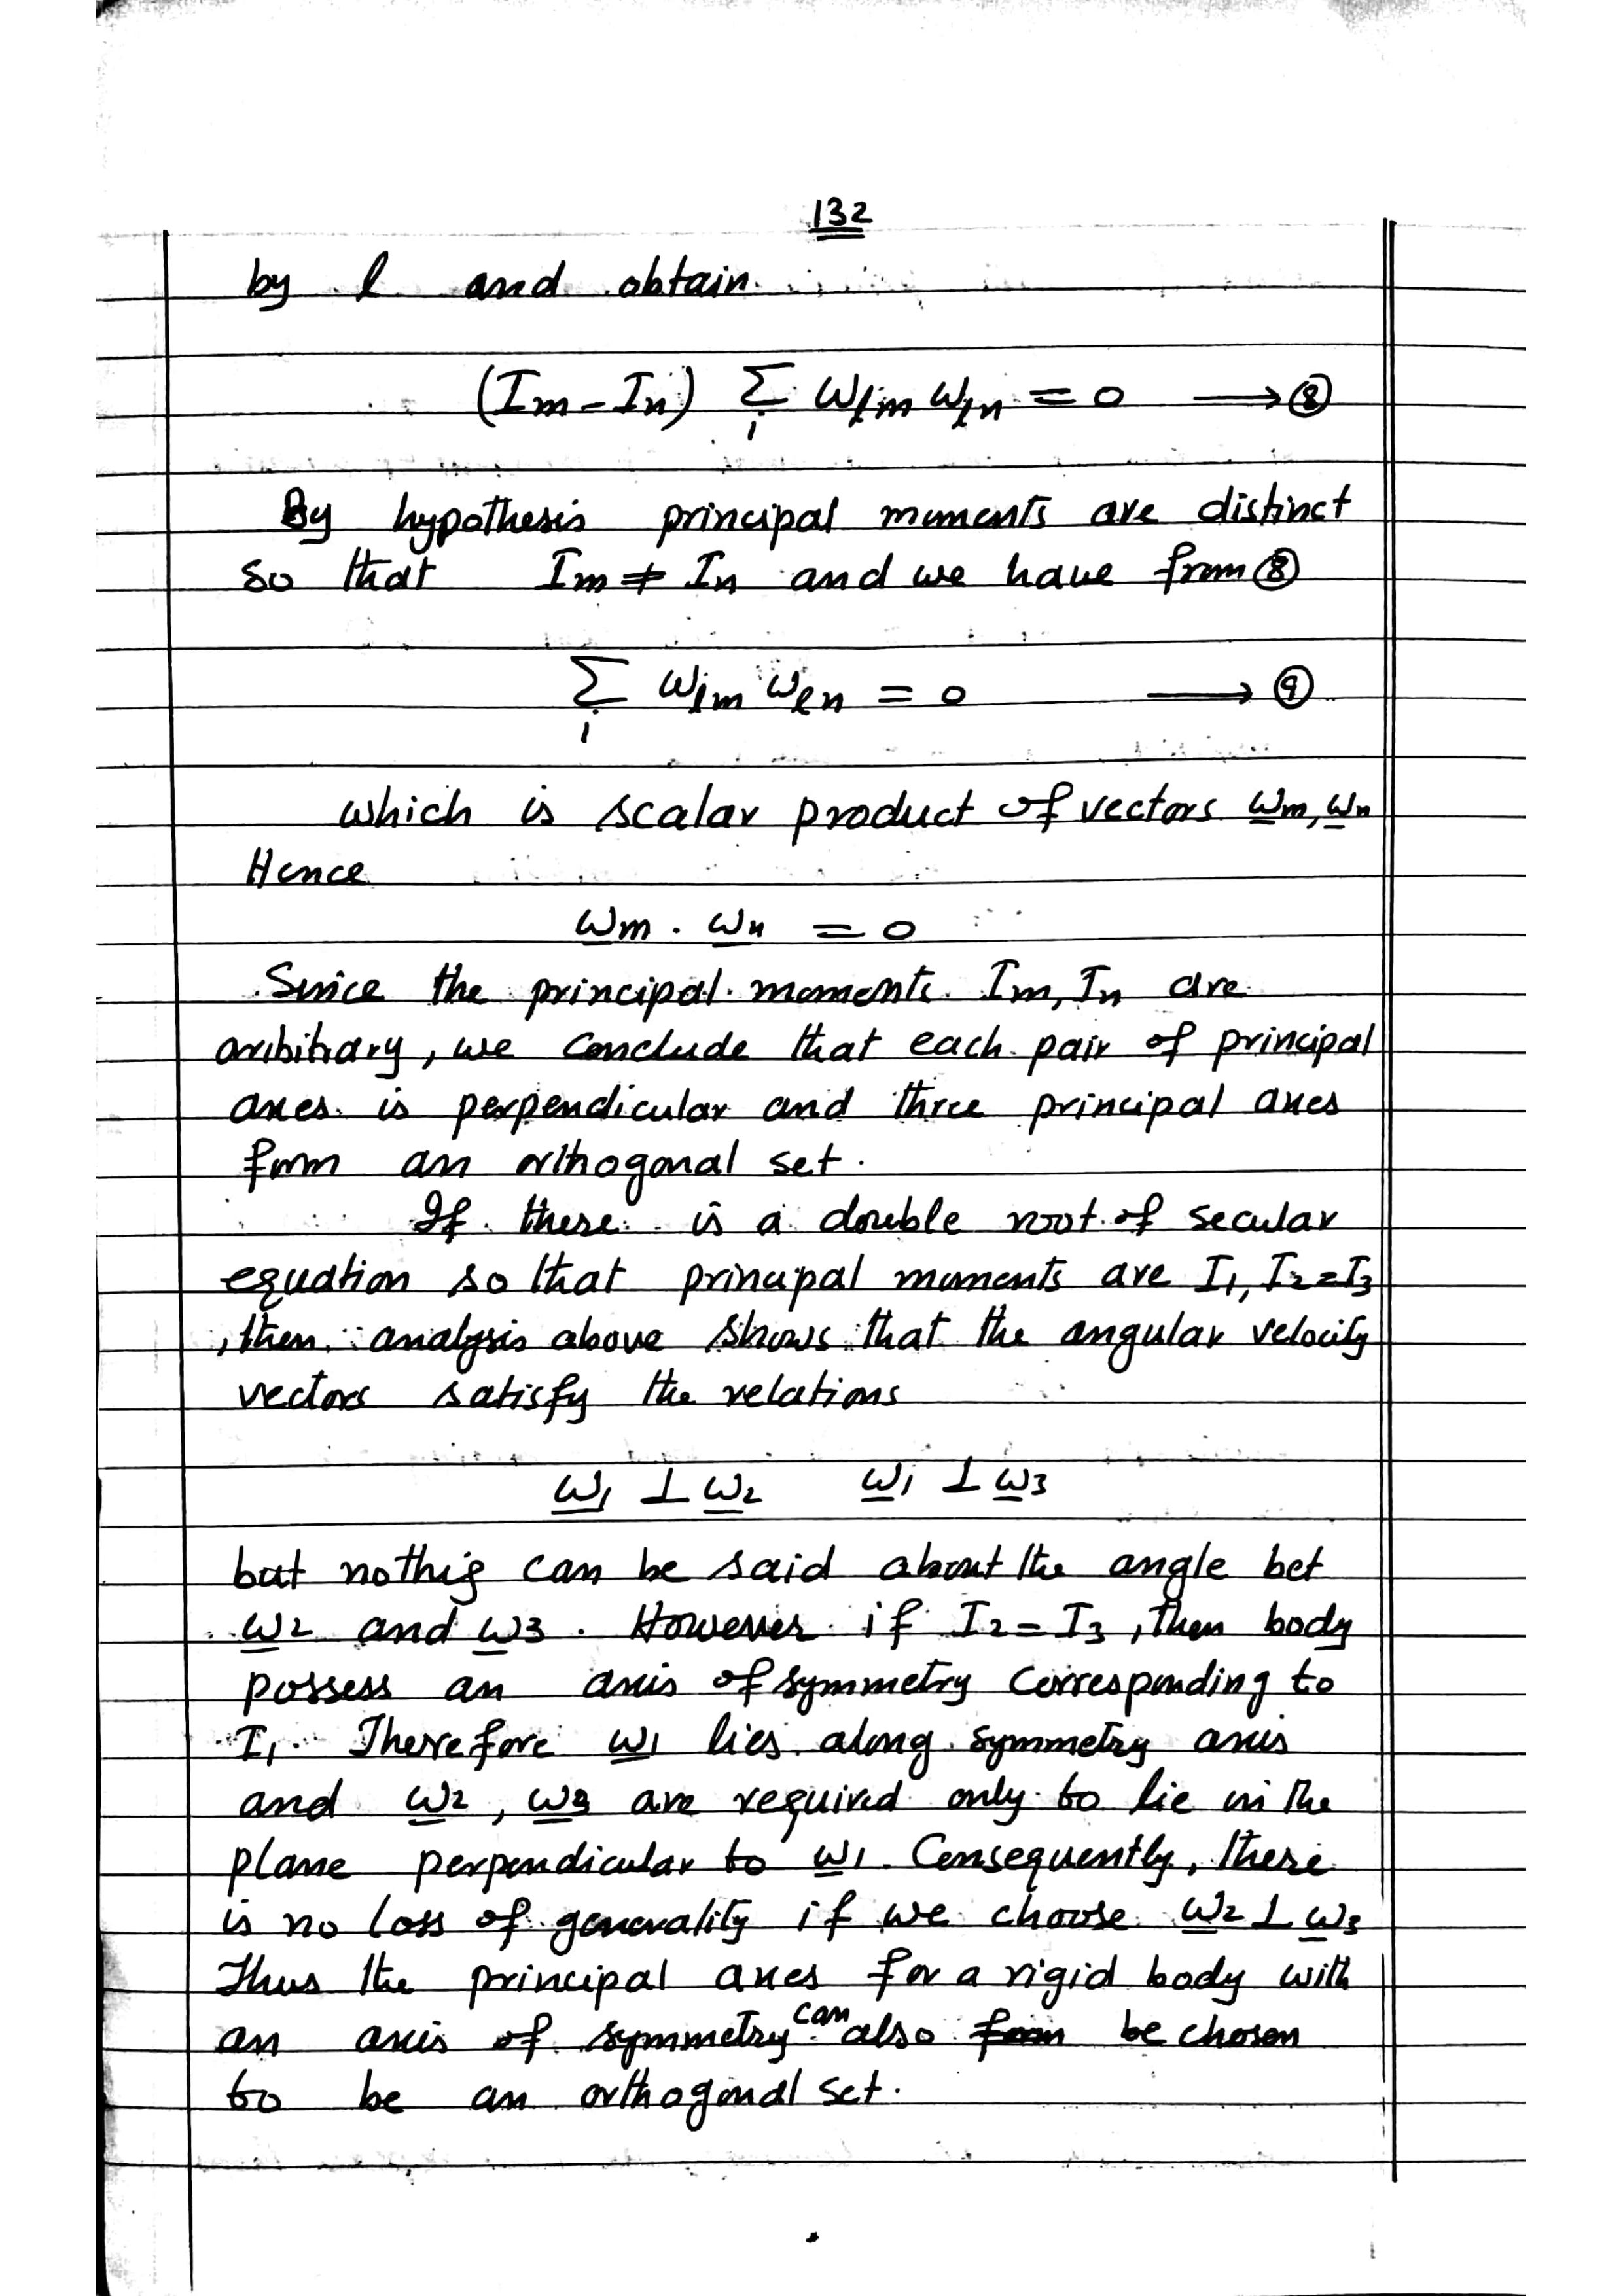 132
by l and obtain
(Im - In) Σ ωlm ωln = 0 → ⑧
l
By hypothesis principal moments are distinct
so that Im ≠ In and we have from ⑧
Σ ωlm ωln = 0 → ⑨
l
which is scalar product of vectors ωm, ωn
Hence
ωm . ωn = 0
Since the principal moments Im, In are
aribitrary, we conclude that each pair of principal
axes is perpendicular and three principal axes
form an orthogonal set.
If there is a double root of secular
equation so that principal moments are I1, I2=I3
, then analysis above shows that the angular velocity
vectors satisfy the relations
ω1 ⊥ ω2 ω1 ⊥ ω3
but nothig can be said about the angle bet
ω2 and ω3. However if I2 = I3, then body
possess an axis of symmetry corresponding to
I1. Therefore ω1 lies along symmetry axis
and ω2, ω3 are required only to lie in the
plane perpendicular to ω1. Consequently, there
is no loss of generality if we choose ω2 ⊥ ω3
Thus the principal axes for a rigid body with
an axis of symmetry can also form be chosen
to be an orthogonal set.